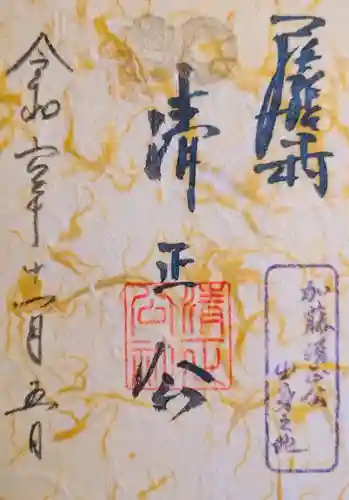 清正公
加藤清正公
出身之地
清正公印
令和六年十一月五日